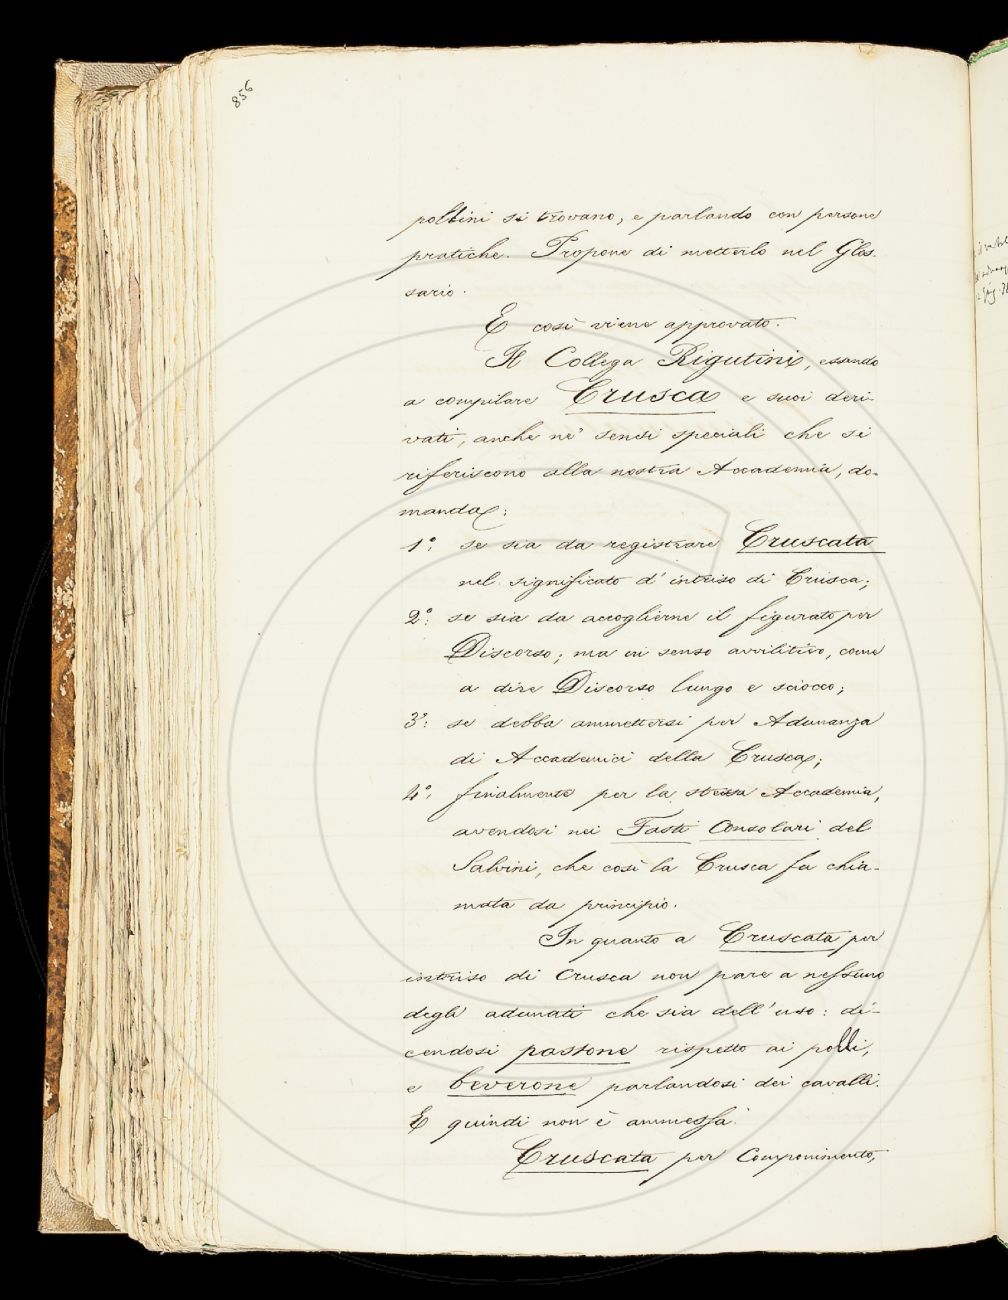 856
poltini si trovano, e parlando con persone
pratiche. Propone di metterlo nel Glos-
sario.
E così viene approvato.
Il Collega Rigutini, essendo
a compilare Crusca e suoi deri-
vati, anche ne' sensi speciali che si
riferiscono alla nostra Accademia, do-
manda:
1º: se sia da registrare Cruscata
nel significato d'intriso di Crusca;
2º: se sia da accoglierne il figurato per
Discorso; ma in senso avvilitivo, come
a dire Discorso lungo e sciocco;
3º: se debba ammettersi per Adunanza
di Accademici della Crusca;
4º: finalmente per la stessa Accademia,
avendosi nei Fasti Consolari del
Salvini, che così la Crusca fu chia-
mata da principio.
In quanto a Cruscata per
intriso di Crusca non pare a nessuno
degli adunati che sia dell'uso: di-
cendosi pastone rispetto ai polli,
e beverone parlandosi dei cavalli.
E quindi non è ammessa.
Cruscata per Componimento,